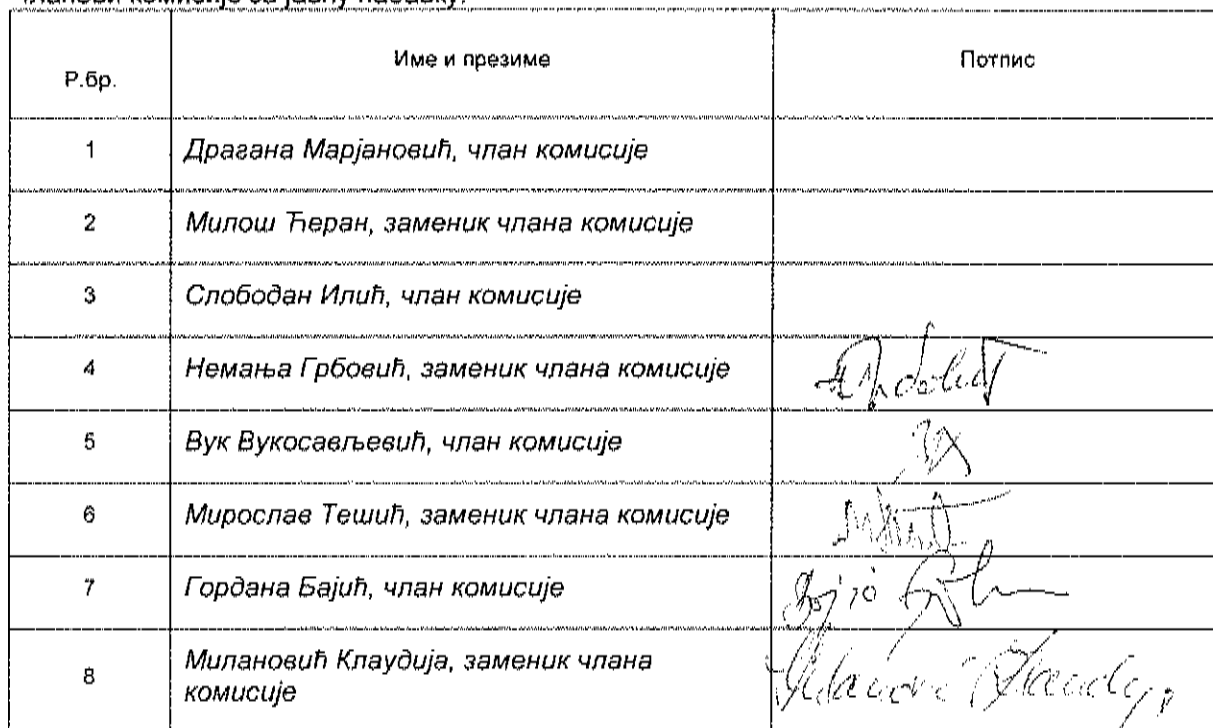 Р.бр. Име и презиме Потпис
1 Драгана Марјановић, члан комисије
2 Милош Ћеран, заменик члана комисије
3 Слободан Илић, члан комисије
4 Немања Грбовић, заменик члана комисије
5 Вук Вукосављевић, члан комисије
6 Мирослав Тешић, заменик члана комисије
7 Гордана Бајић, члан комисије
8 Милановић Клаудија, заменик члана
комисије